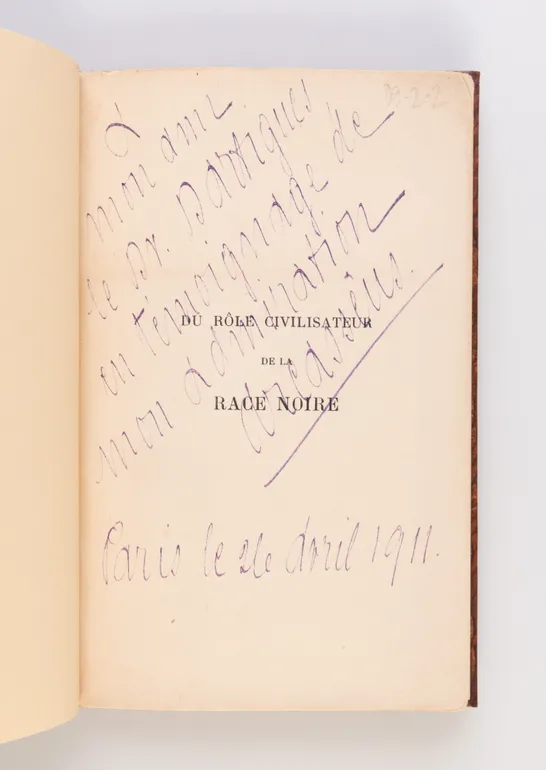 à
mon ami
le Dr. Dartigues
en témoignage de
mon admiration
09-2-2
DU RÔLE CIVILISATEUR
DE LA
RACE NOIRE
Paris le 26 Avril 1911.